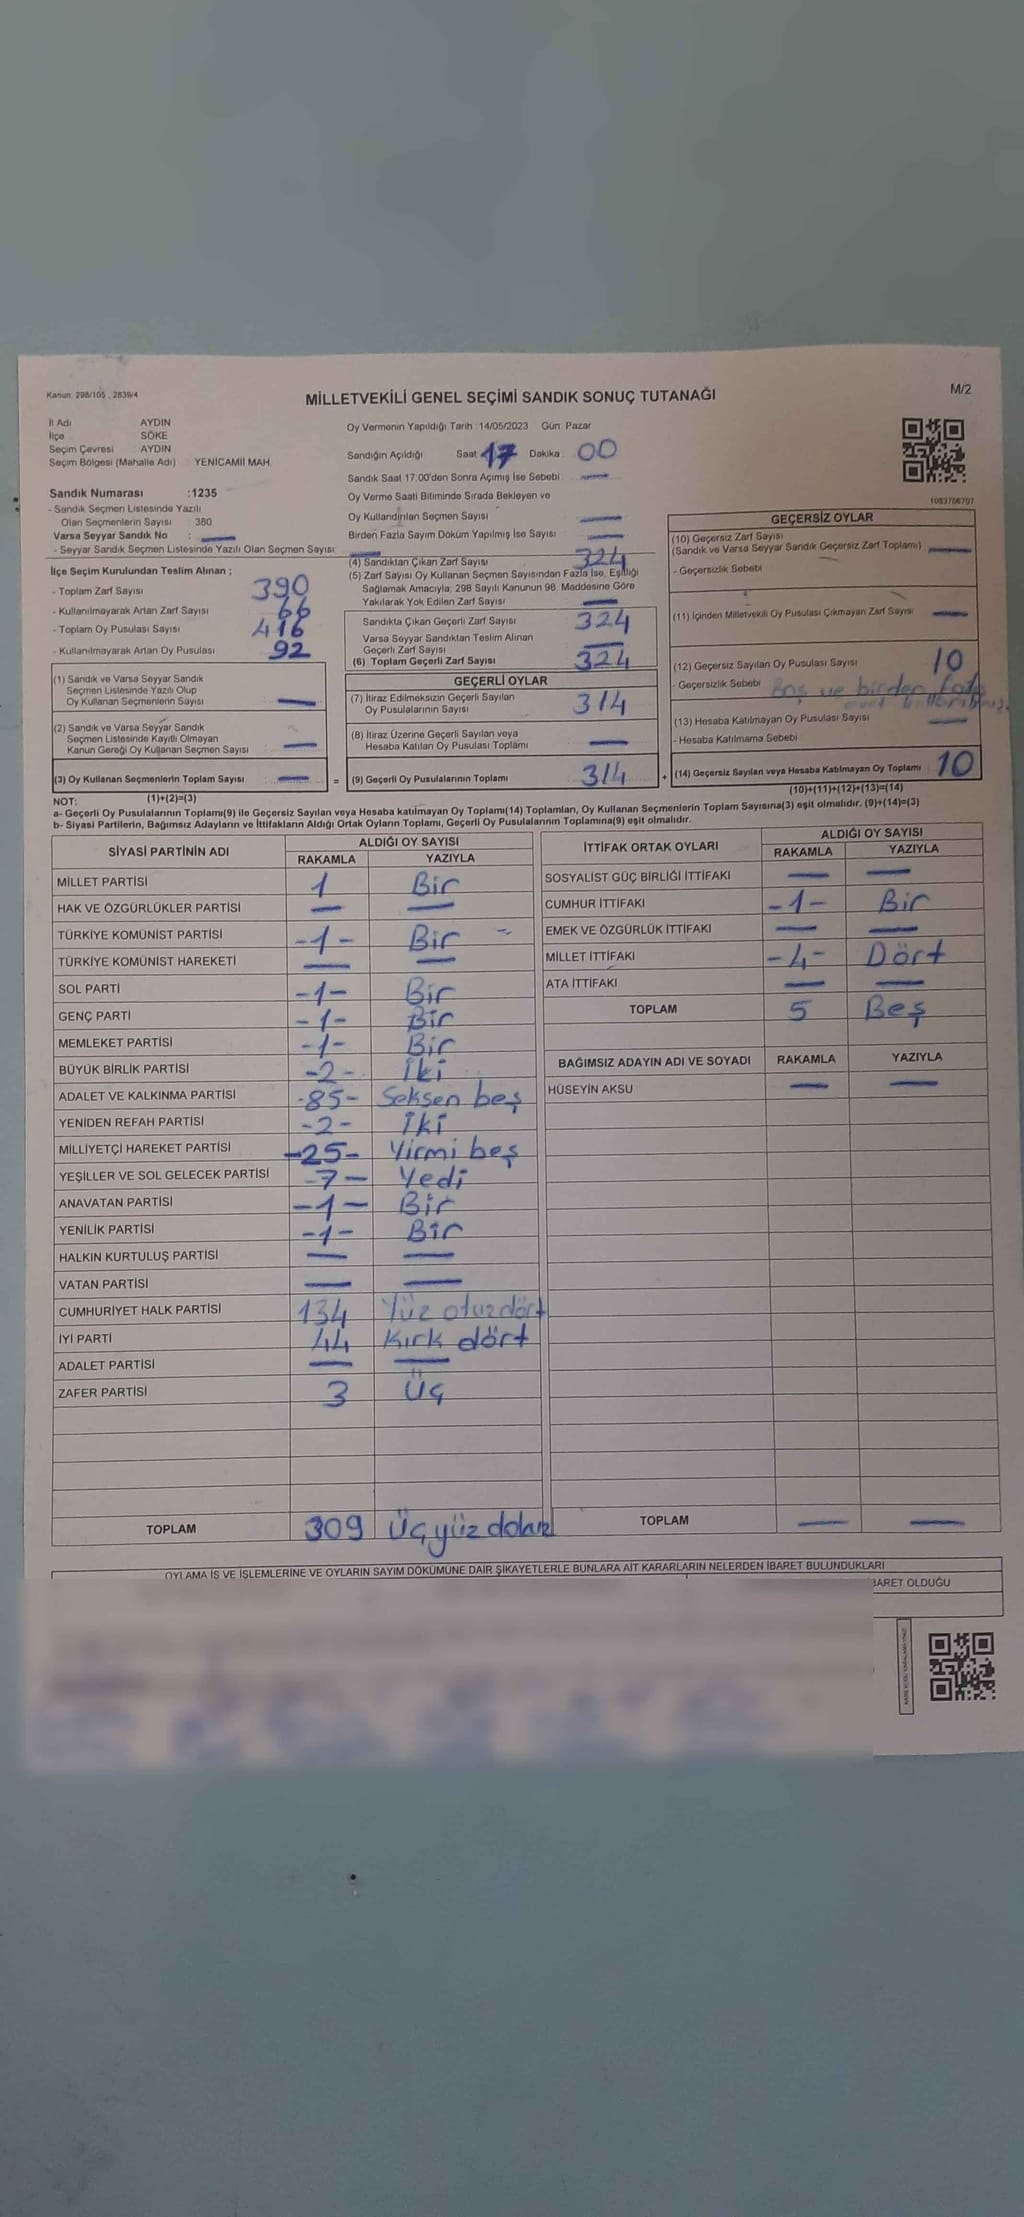 Kanun: 298/105 , 2839/4
MİLLETVEKİLİ GENEL SEÇİMİ SANDIK SONUÇ TUTANAĞI
M/2
İl Adı AYDIN
İlçe SÖKE
Seçim Çevresi AYDIN
Seçim Bölgesi (Mahalle Adı) YENİCAMİİ MAH.
Sandık Numarası :1235
- Sandık Seçmen Listesinde Yazılı
Olan Seçmenlerin Sayısı 380
Varsa Seyyar Sandık No : —
- Seyyar Sandık Seçmen Listesinde Yazılı Olan Seçmen Sayısı: —
İlçe Seçim Kurulundan Teslim Alınan ;
- Toplam Zarf Sayısı 390
- Kullanılmayarak Artan Zarf Sayısı 66
- Toplam Oy Pusulası Sayısı 416
- Kullanılmayarak Artan Oy Pusulası 92
(1) Sandık ve Varsa Seyyar Sandık
Seçmen Listesinde Yazılı Olup
Oy Kullanan Seçmenlerin Sayısı —
(2) Sandık ve Varsa Seyyar Sandık
Seçmen Listesinde Kayıtlı Olmayan
Kanun Gereği Oy Kullanan Seçmen Sayısı —
(3) Oy Kullanan Seçmenlerin Toplam Sayısı — =
(1)+(2)=(3)
Oy Vermenin Yapıldığı Tarih :14/05/2023 Gün: Pazar
Sandığın Açıldığı Saat 17 Dakika 00
Sandık Saat 17.00'den Sonra Açımış İse Sebebi : —
Oy Verme Saati Bitiminde Sırada Bekleyen ve
Oy Kullandırılan Seçmen Sayısı —
Birden Fazla Sayım Döküm Yapılmış İse Sayısı —
(4) Sandıktan Çıkan Zarf Sayısı 324
(5) Zarf Sayısı Oy Kullanan Seçmen Sayısından Fazla İse, Eşitliği
Sağlamak Amacıyla, 298 Sayılı Kanunun 98. Maddesine Göre
Yakılarak Yok Edilen Zarf Sayısı —
Sandıkta Çıkan Geçerli Zarf Sayısı 324
Varsa Seyyar Sandıktan Teslim Alınan
Geçerli Zarf Sayısı —
(6) Toplam Geçerli Zarf Sayısı 324
GEÇERLİ OYLAR
(7) İtiraz Edilmeksizin Geçerli Sayılan
Oy Pusulalarının Sayısı 314
(8) İtiraz Üzerine Geçerli Sayılan veya
Hesaba Katılan Oy Pusulası Toplamı —
(9) Geçerli Oy Pusulalarının Toplamı 314 +
1083706707
GEÇERSİZ OYLAR
(10) Geçersiz Zarf Sayısı
(Sandık ve Varsa Seyyar Sandık Geçersiz Zarf Toplamı) —
- Geçersizlik Sebebi
(11) İçinden Milletvekili Oy Pusulası Çıkmayan Zarf Sayısı —
(12) Geçersiz Sayılan Oy Pusulası Sayısı 10
- Geçersizlik Sebebi Boş ve birden fazla
(13) Hesaba Katılmayan Oy Pusulası Sayısı —
- Hesaba Katılmama Sebebi
(14) Geçersiz Sayılan veya Hesaba Katılmayan Oy Toplamı 10
(10)+(11)+(12)+(13)=(14)
NOT:
a- Geçerli Oy Pusulalarının Toplamı(9) ile Geçersiz Sayılan veya Hesaba katılmayan Oy Toplamı(14) Toplamları, Oy Kullanan Seçmenlerin Toplam Sayısına(3) eşit olmalıdır. (9)+(14)=(3)
b- Siyasi Partilerin, Bağımsız Adayların ve İttifakların Aldığı Ortak Oyların Toplamı, Geçerli Oy Pusulalarının Toplamına(9) eşit olmalıdır.
SİYASİ PARTİNİN ADI ALDIĞI OY SAYISI
RAKAMLA YAZIYLA
MİLLET PARTİSİ 1 Bir
HAK VE ÖZGÜRLÜKLER PARTİSİ — —
TÜRKİYE KOMÜNİST PARTİSİ -1- Bir
TÜRKİYE KOMÜNİST HAREKETİ — —
SOL PARTİ -1- Bir
GENÇ PARTİ -1- Bir
MEMLEKET PARTİSİ -1- Bir
BÜYÜK BİRLİK PARTİSİ -2- İki
ADALET VE KALKINMA PARTİSİ -85- Seksen beş
YENİDEN REFAH PARTİSİ -2- İki
MİLLİYETÇİ HAREKET PARTİSİ -25- Yirmi beş
YEŞİLLER VE SOL GELECEK PARTİSİ -7- Yedi
ANAVATAN PARTİSİ -1- Bir
YENİLİK PARTİSİ -1- Bir
HALKIN KURTULUŞ PARTİSİ — —
VATAN PARTİSİ — —
CUMHURİYET HALK PARTİSİ 134 Yüz otuz dört
İYİ PARTİ 44 Kırk dört
ADALET PARTİSİ — —
ZAFER PARTİSİ 3 Üç
TOPLAM 309 Üç yüz dokuz
İTTİFAK ORTAK OYLARI ALDIĞI OY SAYISI
RAKAMLA YAZIYLA
SOSYALİST GÜÇ BİRLİĞİ İTTİFAKI — —
CUMHUR İTTİFAKI -1- Bir
EMEK VE ÖZGÜRLÜK İTTİFAKI — —
MİLLET İTTİFAKI -4- Dört
ATA İTTİFAKI — —
TOPLAM 5 Beş
BAĞIMSIZ ADAYIN ADI VE SOYADI RAKAMLA YAZIYLA
HÜSEYİN AKSU — —
TOPLAM — —
OYLAMA İŞ VE İŞLEMLERİNE VE OYLARIN SAYIM DÖKÜMÜNE DAİR ŞİKAYETLERLE BUNLARA AİT KARARLARIN NELERDEN İBARET BULUNDUKLARI
BARET OLDUĞU